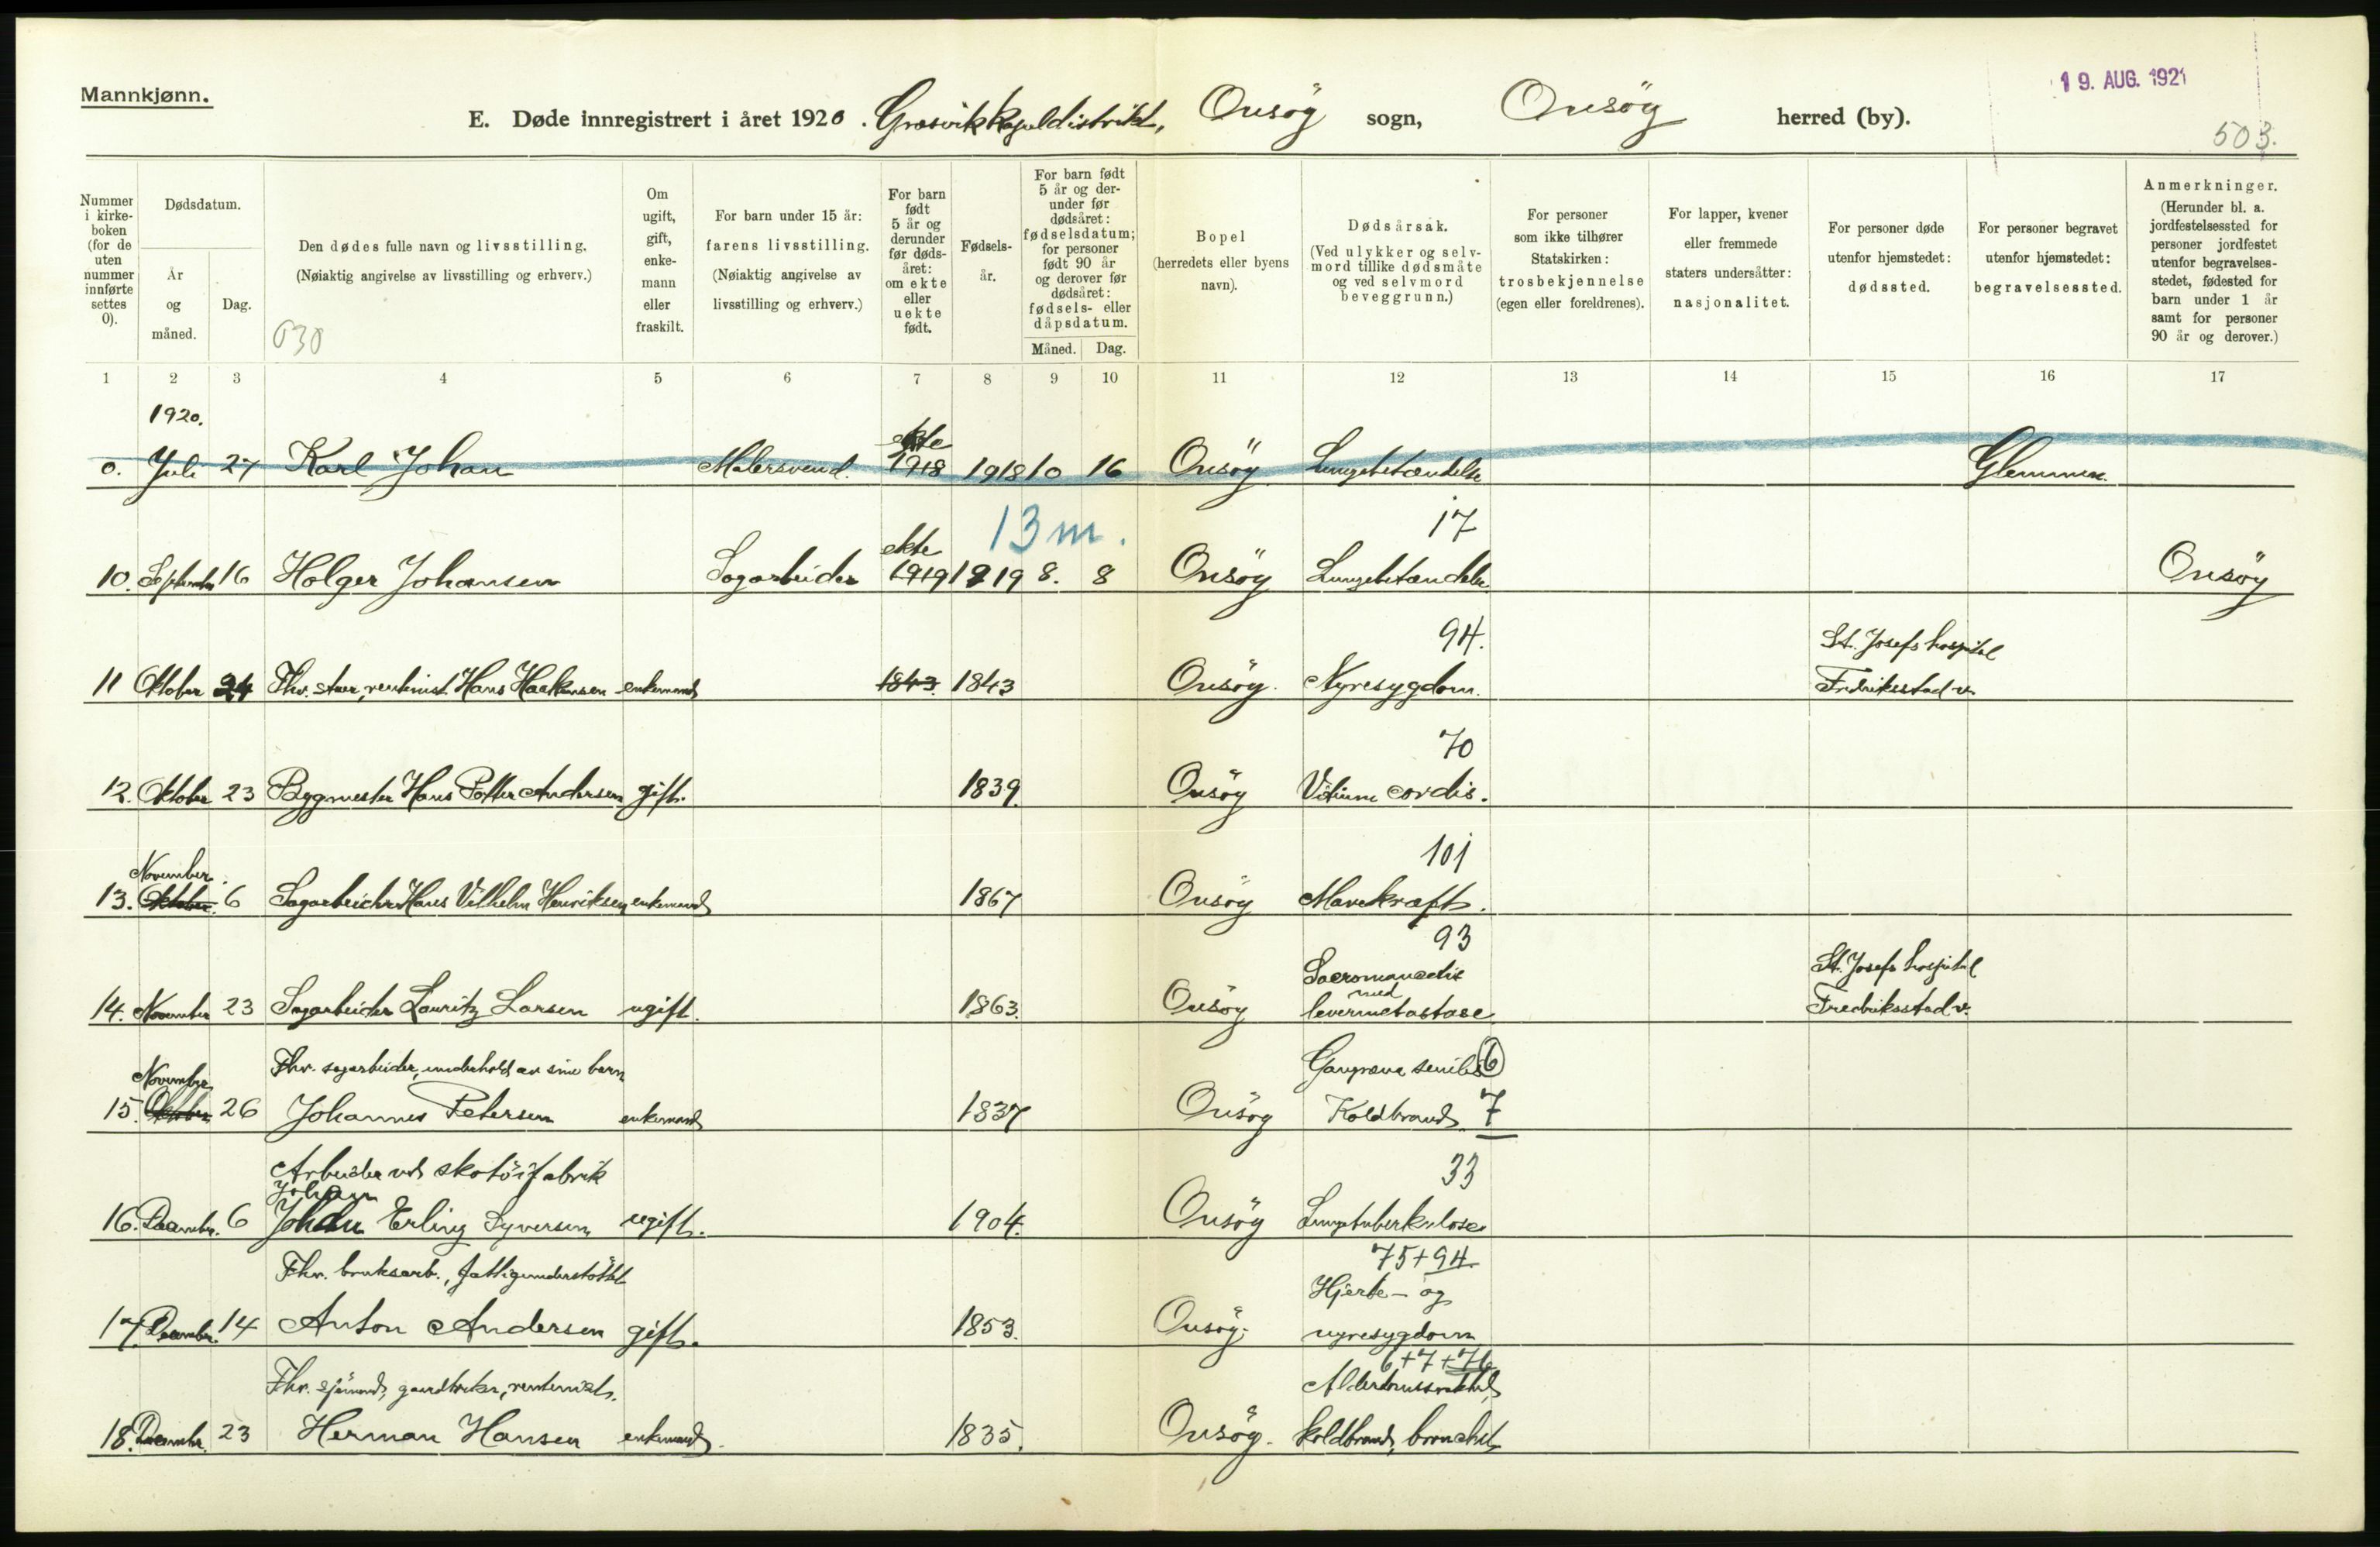 Mannkjønn.
19. AUG. 1921
E. Døde innregistrert i året 1920. Græsvik kapeldistrikt, Onsöy sogn, Onsöy herred (by).
503.
Nummer i kirke-boken (for de uten nummer innførte settes 0).
Dødsdatum.
År og måned.
Dag.
Den dødes fulle navn og livsstilling.
(Nøiaktig angivelse av livsstilling og erhverv.)
030
Om ugift, gift, enke-mann eller fraskilt.
For barn under 15 år:
farens livsstilling.
(Nøiaktig angivelse av livsstilling og erhverv.)
For barn født 5 år og derunder før døds-året: om ekte eller uekte født.
Fødsels-år.
For barn født 5 år og der-under før dødsåret: fødselsdatum; for personer født 90 år og derover før dødsåret: fødsels- eller dåpsdatum.
Måned. Dag.
Bopel
(herredets eller byens navn).
Dødsårsak.
(Ved ulykker og selv-mord tillike dødsmåte og ved selvmord beveggrunn.)
For personer som ikke tilhører Statskirken:
trosbekjennelse
(egen eller foreldrenes).
For lapper, kvener eller fremmede staters undersåtter:
nasjonalitet.
For personer døde utenfor hjemstedet:
dødssted.
For personer begravet utenfor hjemstedet:
begravelsessted.
Anmerkninger.
(Herunder bl. a. jordfestelsessted for personer jordfestet utenfor begravelses-stedet, fødested for barn under 1 år samt for personer 90 år og derover.)
1 2 3 4 5 6 7 8 9 10 11 12 13 14 15 16 17
1920.
ekte
0. Juli 27 Karl Johan Malersvend. 1918 1918 10 16 Onsöy Lungebetændelse Glemmen.
13 m. 17
ekte
10. September 16 Holger Johansen Sagarbeider 1919 1919 8. 8 Onsöy Lungebetændelse Onsöy
94. St. Josefs hospital
11 Oktober 24 Fhv. stuer, rentenist Hans Haakensen enkemand 1843 1843 Onsöy. Nyresygdom. Fredriksstad v.
70
12. Oktober 23 Bygmester Hans Petter Andersen gift. 1839. Onsöy Vitium cordis.
November. 101
13. Oktober. 6 Sagarbeider Hans Vilhelm Henriksen enkemand 1867 Onsöy Mavekræft.
93
med St. Josefs hospital
14. November 23 Sagarbeider Lauritz Larsen ugift. 1863. Onsöy levermetastase Fredriksstad v.
November Fhv. sagarbeider, underholdt av sine barn Gangræna senilis 6
15. Oktober 26 Johannes Petersen enkemand 1837 Onsöy Koldbrand 7
Arbeider ved skotöifabrik 33
Johan
16. Decembr. 6 Johan Erling Syversen ugift. 1904. Onsöy Lungetuberkulose
Fhv. bruksarb., fattigunderstöttet 75+94
Hjerte- og
17. December. 14 Anton Andersen gift. 1853. Onsöy. nyresygdom
6+7+76
Fhv. sjömand, gaardbruker, rentenist. Alderdomssvakhet,
18. Decembr. 23 Herman Hansen enkemand. 1835. Onsöy. koldbrand, bronchit